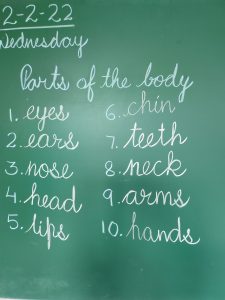 2-2-22
Wednesday
Parts of the body
1. eyes
2. ears
3. nose
4. head
5. lips
6. chin
7. teeth
8. neck
9. arms
10. hands